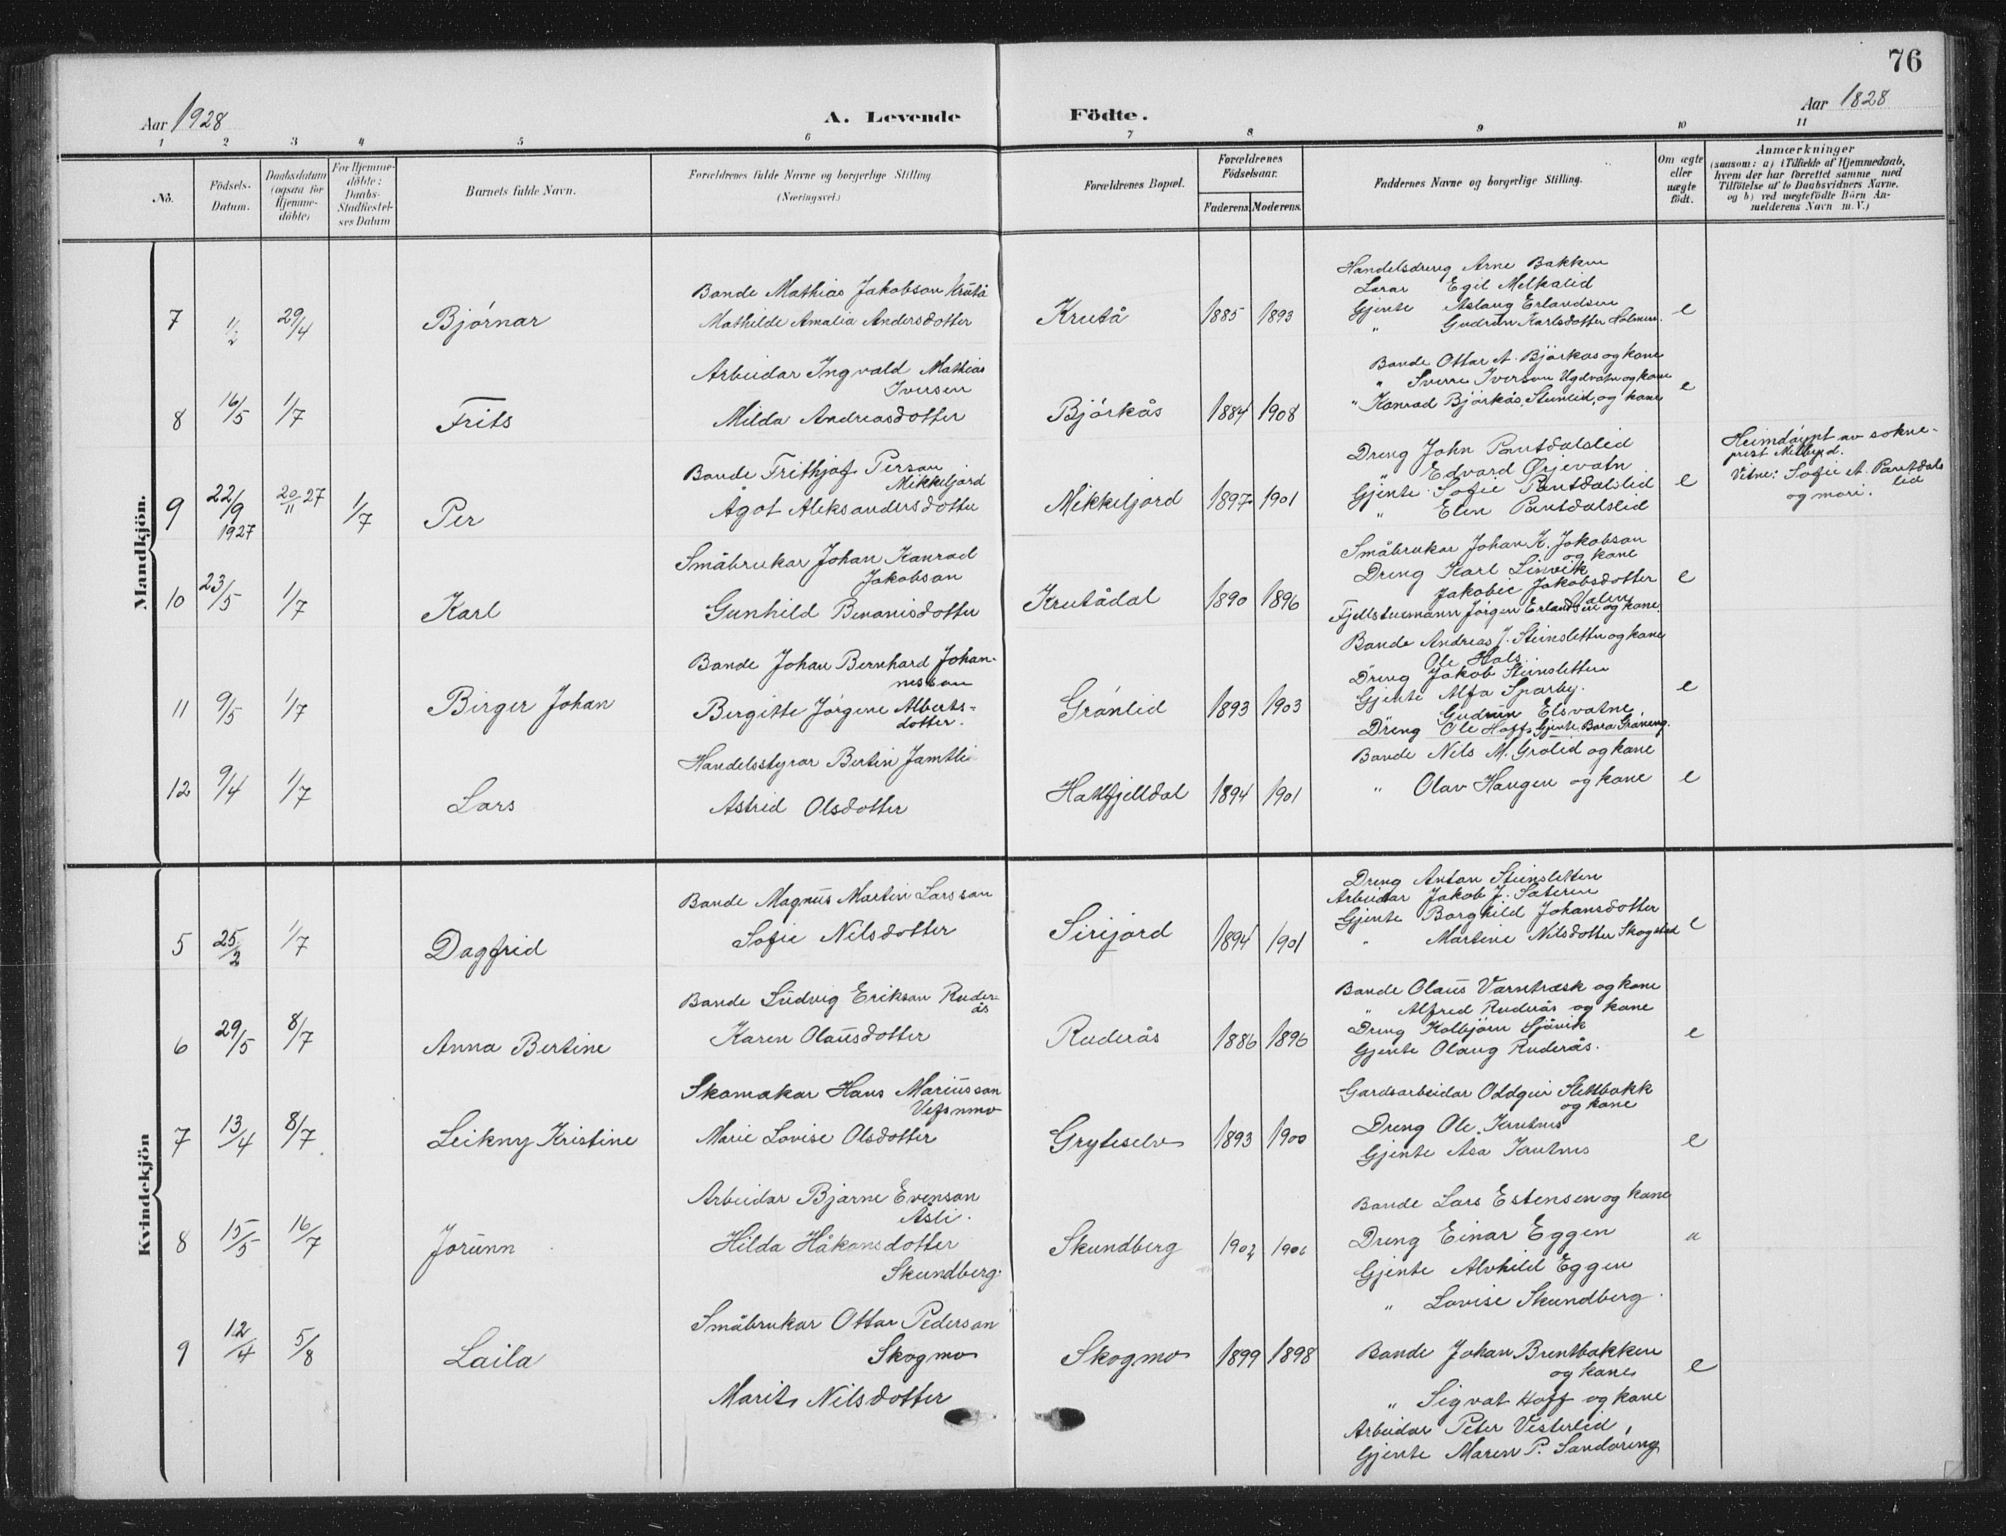 76
Aar 1928
A. Levende
Födte.
Aar 1828
1 2 3 4 5 6 7 8 9 10 11
No.
Födsels-
Datum.
Daabsdatum
(ogsaa for
Hjemme-
döbte)
For Hjemme-
döbte:
Daabs-
Stadfæstel-
ses Datum
Barnets fulde Navn.
Forældrenes fulde Navne og borgerlige Stilling
(Næringsvei)
Forældrenes Bopæl.
Forældrenes
Födselsaar.
Faderens
Moderens.
Faddernes Navne og borgerlige Stilling.
Om ægte
eller
uægte
födt.
Anmærkninger
(saasom: a) i Tilfælde af Hjemmedaab,
hvem der har forrettet samme, med
Tilföielse af to Daabsvidners Navne.
og b) ved uægtefödte Börn An-
melderens Navn m. V.)
Mandkjön.
7 1/2 29/4 Bjørnar
Bonde Mathias Jakobson Krutå
Mathilde Amalia Andersdotter
Krutå 1885 1893
Handelsdreng Arne Bakken
Lærar Egil Melkalid
Gjente Aslaug Erlandsen
" Gudrun Karlsdotter Holmen.
e
8 16/5 1/7 Frits
Arbeidar Ingvald Mathias
Iversen
Milda Andreasdotter
Bjørkås 1884 1908
Bonde Ottar A. Bjørkås og kone
" Sverre Iverson Ugdvatn og kone
" Konrad Bjørkås, Stenlid, og kone
e
9 22/9 1927 20/11 27 1/7 Per
Bonde Frithjof Person
Mikkeljord
Ågot Aleksandersdotter
Mikkeljord 1897 1901
Dreng John Pantdalslid
" Edvard Ørjevatn
Gjente Sofie Pantdalslid
" Elen Pantdalslid
e
Heimdøypt av sokne-
prest Melbyd.
Vitne: Sofie A. Pantdals
lid
og mori.
10 23/5 1/7 Karl
Småbrukar Johan Konrad
Jakobson
Gunhild Benonisdotter
Krutådal 1890 1896
Småbrukar Johan K. Jakobson
og kone
Dreng Karl Linvik
Jakobie Jakobsdotter
Fjellstuemann Jørgen Erlandsen og kone.
e
11 9/5 1/7 Birger Johan
Bonde Johan Bernhard Johan-
nesson
Birgitte Jørgine Alberts-
dotter.
Grønlid 1893 1903
Bonde Andreas J. Steinsletten og kone
Ole Hals.
Dreng Jakob Steinsletten
Gjente Alfa Sparby.
Gudrun Elsvatne
Dreng Ole Hoff, Gjente Bora Grøneng.
e
12 9/4 1/7 Lars
Handelsstyrar Bertin Jamtli
Astrid Olsdotter
Hattfjelldal 1894 1901
Bonde Nils M. Grølid og kone
" Olav Haugen og kone
e
Kvindekjön
5 25/2 1/7 Dagfrid
Bonde Magnus Martin Larsson
Sofie Nilsdotter
Sirijord 1894 1901
Dreng Anton Steinsletten
Arbeidar Jakob J. Sæteren
Gjente Borghild Johansdotter
" Martine Nilsdotter Skogstad
e
6 29/5 8/7 Anna Bertine
Bonde Ludvig Erikson Ruder-
ås
Karen Olausdotter
Ruderås 1886 1896
Bonde Olaus Varntræsk og kone
" Alfred Ruderås og kone
Dreng Kolbjørn Sjåvik
Gjente Olaug Ruderås.
e
7 13/4 8/7 Leikny Kristine
Skomakar Hans Mariusson
Vefsnmo
Marie Lovise Olsdotter
Gryteselv 1893 1900
Gardsarbeidar Oddgeir Slettbakk
og kone
Dreng Ole Krutnes
Gjente Åsa Krutnes
e
8 15/5 16/7 Jorunn
Arbeidar Bjarne Evenson
Åsli.
Hilda Håkonsdotter
Skundberg.
Skundberg
Bonde Lars Estensen og kone
Dreng Einar Eggen
Gjente Alvhild Eggen
" Lovise Skundberg.
u
9 12/4 5/8 Laila
Småbrukar Ottar Pederson
Skogmo
Marit Nilsdotter
Skogmo 1899 1898
Bonde Johan Brentbakken
og kone
" Sigvat Hoff og kone
Arbeidar Peter Vesterlid
Gjente Maren P. Sandøreng
e